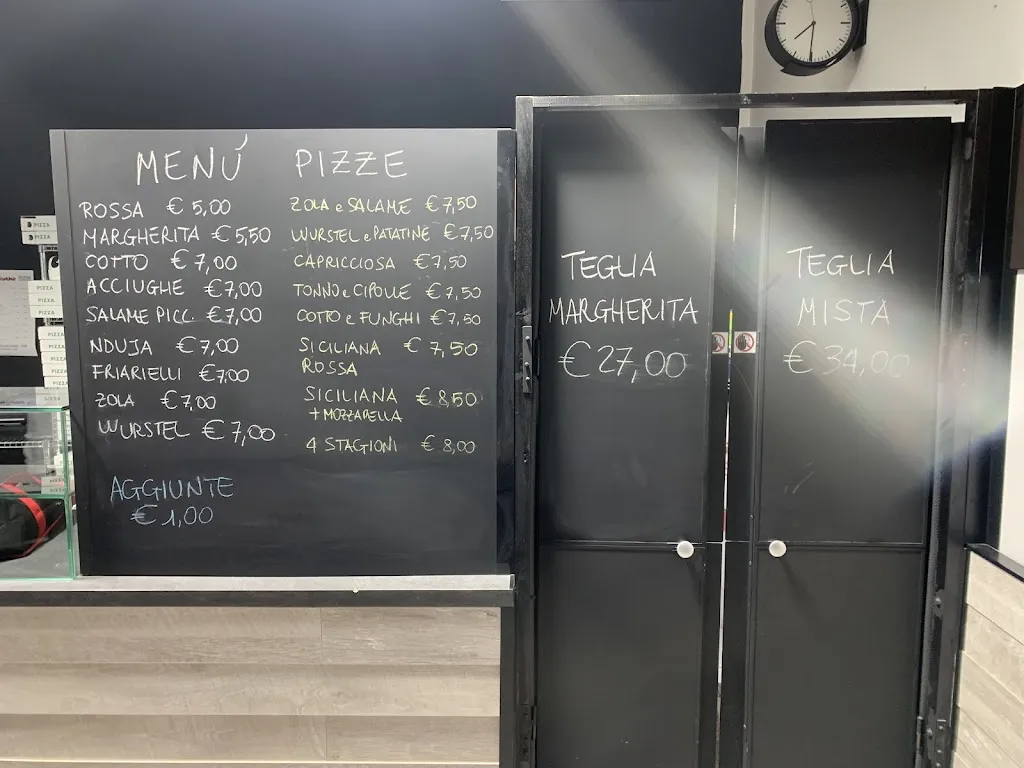 MENÚ PIZZE
ROSSA € 5,00
MARGHERITA € 5,50
COTTO € 7,00
ACCIUGHE €7,00
SALAME PICC. €7,00
NDUJA €7,00
FRIARIELLI €7,00
ZOLA €7,00
WURSTEL €7,00
AGGIUNTE
€ 1,00
ZOLA e SALAME €7,50
WURSTEL e PATATINE €7,50
CAPRICCIOSA €7,50
TONNO e CIPOLLE €7,50
COTTO e FUNGHI €7,50
SICILIANA € 7,50
ROSSA
SICILIANA € 8,50
+ MOZZARELLA
4 STAGIONI € 8,00
TEGLIA
MARGHERITA
€27,00
TEGLIA
MISTA
€34,00
PIZZA
PIZZA
PIZZA
PIZZA
PIZZA
PIZZA
PIZZA
PIZZA
PIZZA